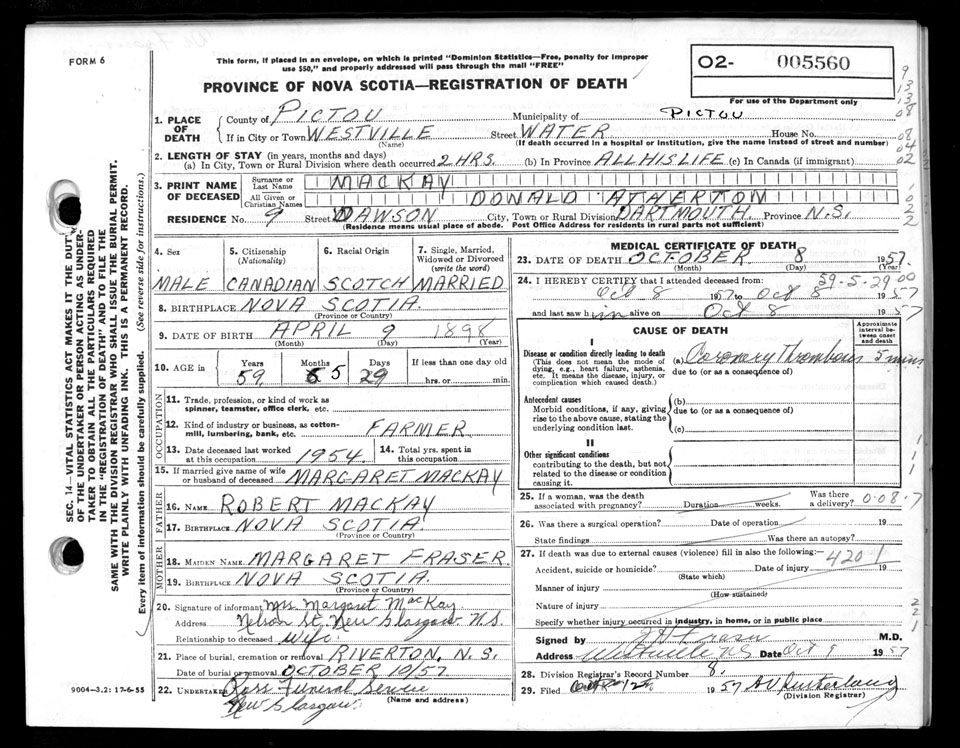 FORM 6
This form, if placed in an envelope, on which is printed "Dominion Statistics—Free, penalty for improper
use $50," and properly addressed will pass through the mail "FREE"
PROVINCE OF NOVA SCOTIA—REGISTRATION OF DEATH
O2- 005560
For use of the Department only
9
13
13
08
08
04
02
1. PLACE OF DEATH
County of PICTOU Municipality of PICTOU
If in City or Town WESTVILLE Street WATER House No.
(Name) (If death occurred in a hospital or institution, give the name instead of street and number)
2. LENGTH OF STAY (in years, months and days)
(a) In City, Town or Rural Division where death occurred 2 HRS. (b) In Province ALL HIS LIFE (c) In Canada (if immigrant)
3. PRINT NAME OF DECEASED
Surname or Last Name MACKAY
All Given or Christian Names DONALD ATHERTON
RESIDENCE No. 9 Street DAWSON City, Town or Rural Division DARTMOUTH Province N.S.
(Residence means usual place of abode. Post Office Address for residents in rural parts not sufficient)
1
0
2
2
4. Sex
MALE
5. Citizenship (Nationality)
CANADIAN
6. Racial Origin
SCOTCH
7. Single, Married, Widowed or Divorced (write the word)
MARRIED
8. BIRTHPLACE NOVA SCOTIA
(Province or Country)
9. DATE OF BIRTH APRIL 9 1898
(Month) (Day) (Year)
10. AGE in Years Months Days If less than one day old
59 5 29 hrs. or min.
OCCUPATION
11. Trade, profession, or kind of work as
spinner, teamster, office clerk, etc.
12. Kind of industry or business, as cotton-
mill, lumbering, bank, etc. FARMER
13. Date deceased last worked at this occupation 1954
14. Total yrs. spent in this occupation
15. If married give name of wife
or husband of deceased MARGARET MACKAY
FATHER
16. NAME ROBERT MACKAY
17. BIRTHPLACE NOVA SCOTIA
(Province or Country)
MOTHER
18. MAIDEN NAME MARGARET FRASER
19. BIRTHPLACE NOVA SCOTIA
(Province or Country)
20. Signature of informant Mrs. Margaret MacKay
Address Nelson St. New Glasgow N.S.
Relationship to deceased Wife
21. Place of burial, cremation or removal RIVERTON, N.S.
Date of burial or removal OCTOBER 10/57
22. UNDERTAKER Ross Funeral Service
New Glasgow
(Name and address)
MEDICAL CERTIFICATE OF DEATH
23. DATE OF DEATH OCTOBER 8 1957.
(Month) (Day) (Year)
59-5-29 00
24. I HEREBY CERTIFY that I attended deceased from:
Oct 8 1957 to Oct 8 1957
and last saw him alive on Oct 8 1957
CAUSE OF DEATH
Approximate interval between onset and death
I
Disease or condition directly leading to death
(This does not mean the mode of
dying, e.g., heart failure, asthenia,
etc. It means the disease, injury, or
complication which caused death.)
(a) Coronary Thrombosis 5 mins
due to (or as a consequence of)
Antecedent causes
Morbid conditions, if any, giving
rise to the above cause, stating the
underlying condition last.
(b)
due to (or as a consequence of)
(c)
II
Other significant conditions
contributing to the death, but not
related to the disease or condition
causing it.
1
1
1
25. If a woman, was the death associated with pregnancy? Duration weeks. Was there a delivery?
0-08-7
26. Was there a surgical operation? Date of operation 19
State findings Was there an autopsy?
27. If death was due to external causes (violence) fill in also the following:—
4201
Accident, suicide or homicide? Date of injury 19
(State which)
Manner of injury
(How sustained)
Nature of injury
Specify whether injury occurred in industry, in home, or in public place
2
2
1
Signed by M.D.
Address Westville NS Date Oct 9 1957
28. Division Registrar's Record Number 8.
29. Filed 1957
(Division Registrar)
SEC. 14—VITAL STATISTICS ACT MAKES IT THE DUTY
OF THE UNDERTAKER OR PERSON ACTING AS UNDER-
TAKER TO OBTAIN ALL THE PARTICULARS REQUIRED
IN THE "REGISTRATION OF DEATH" AND TO FILE THE
SAME WITH THE DIVISION REGISTRAR WHO SHALL ISSUE THE BURIAL PERMIT.
WRITE PLAINLY WITH UNFADING INK. THIS IS A PERMANENT RECORD.
Every item of information should be carefully supplied. (See reverse side for instructions.)
9004-3.2: 17-6-55